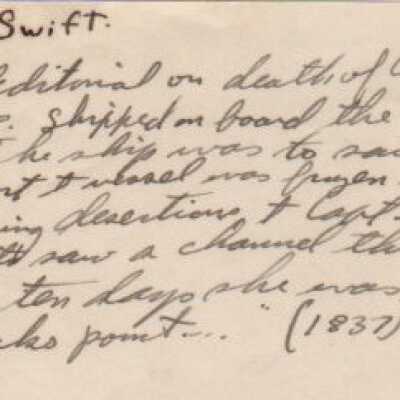 Swift.
Editorial on death of
Shipped on board the
the ship was to sa
t & vessel was frozen
ing desertions, & Capt
saw a channel th
ten days she was
cks point... " (1837)